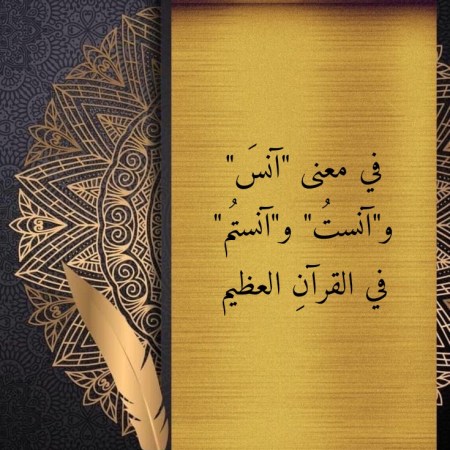 في معنى "آنسَ"
و"آنستُ" و"آنستُم"
في القرآنِ العظيم